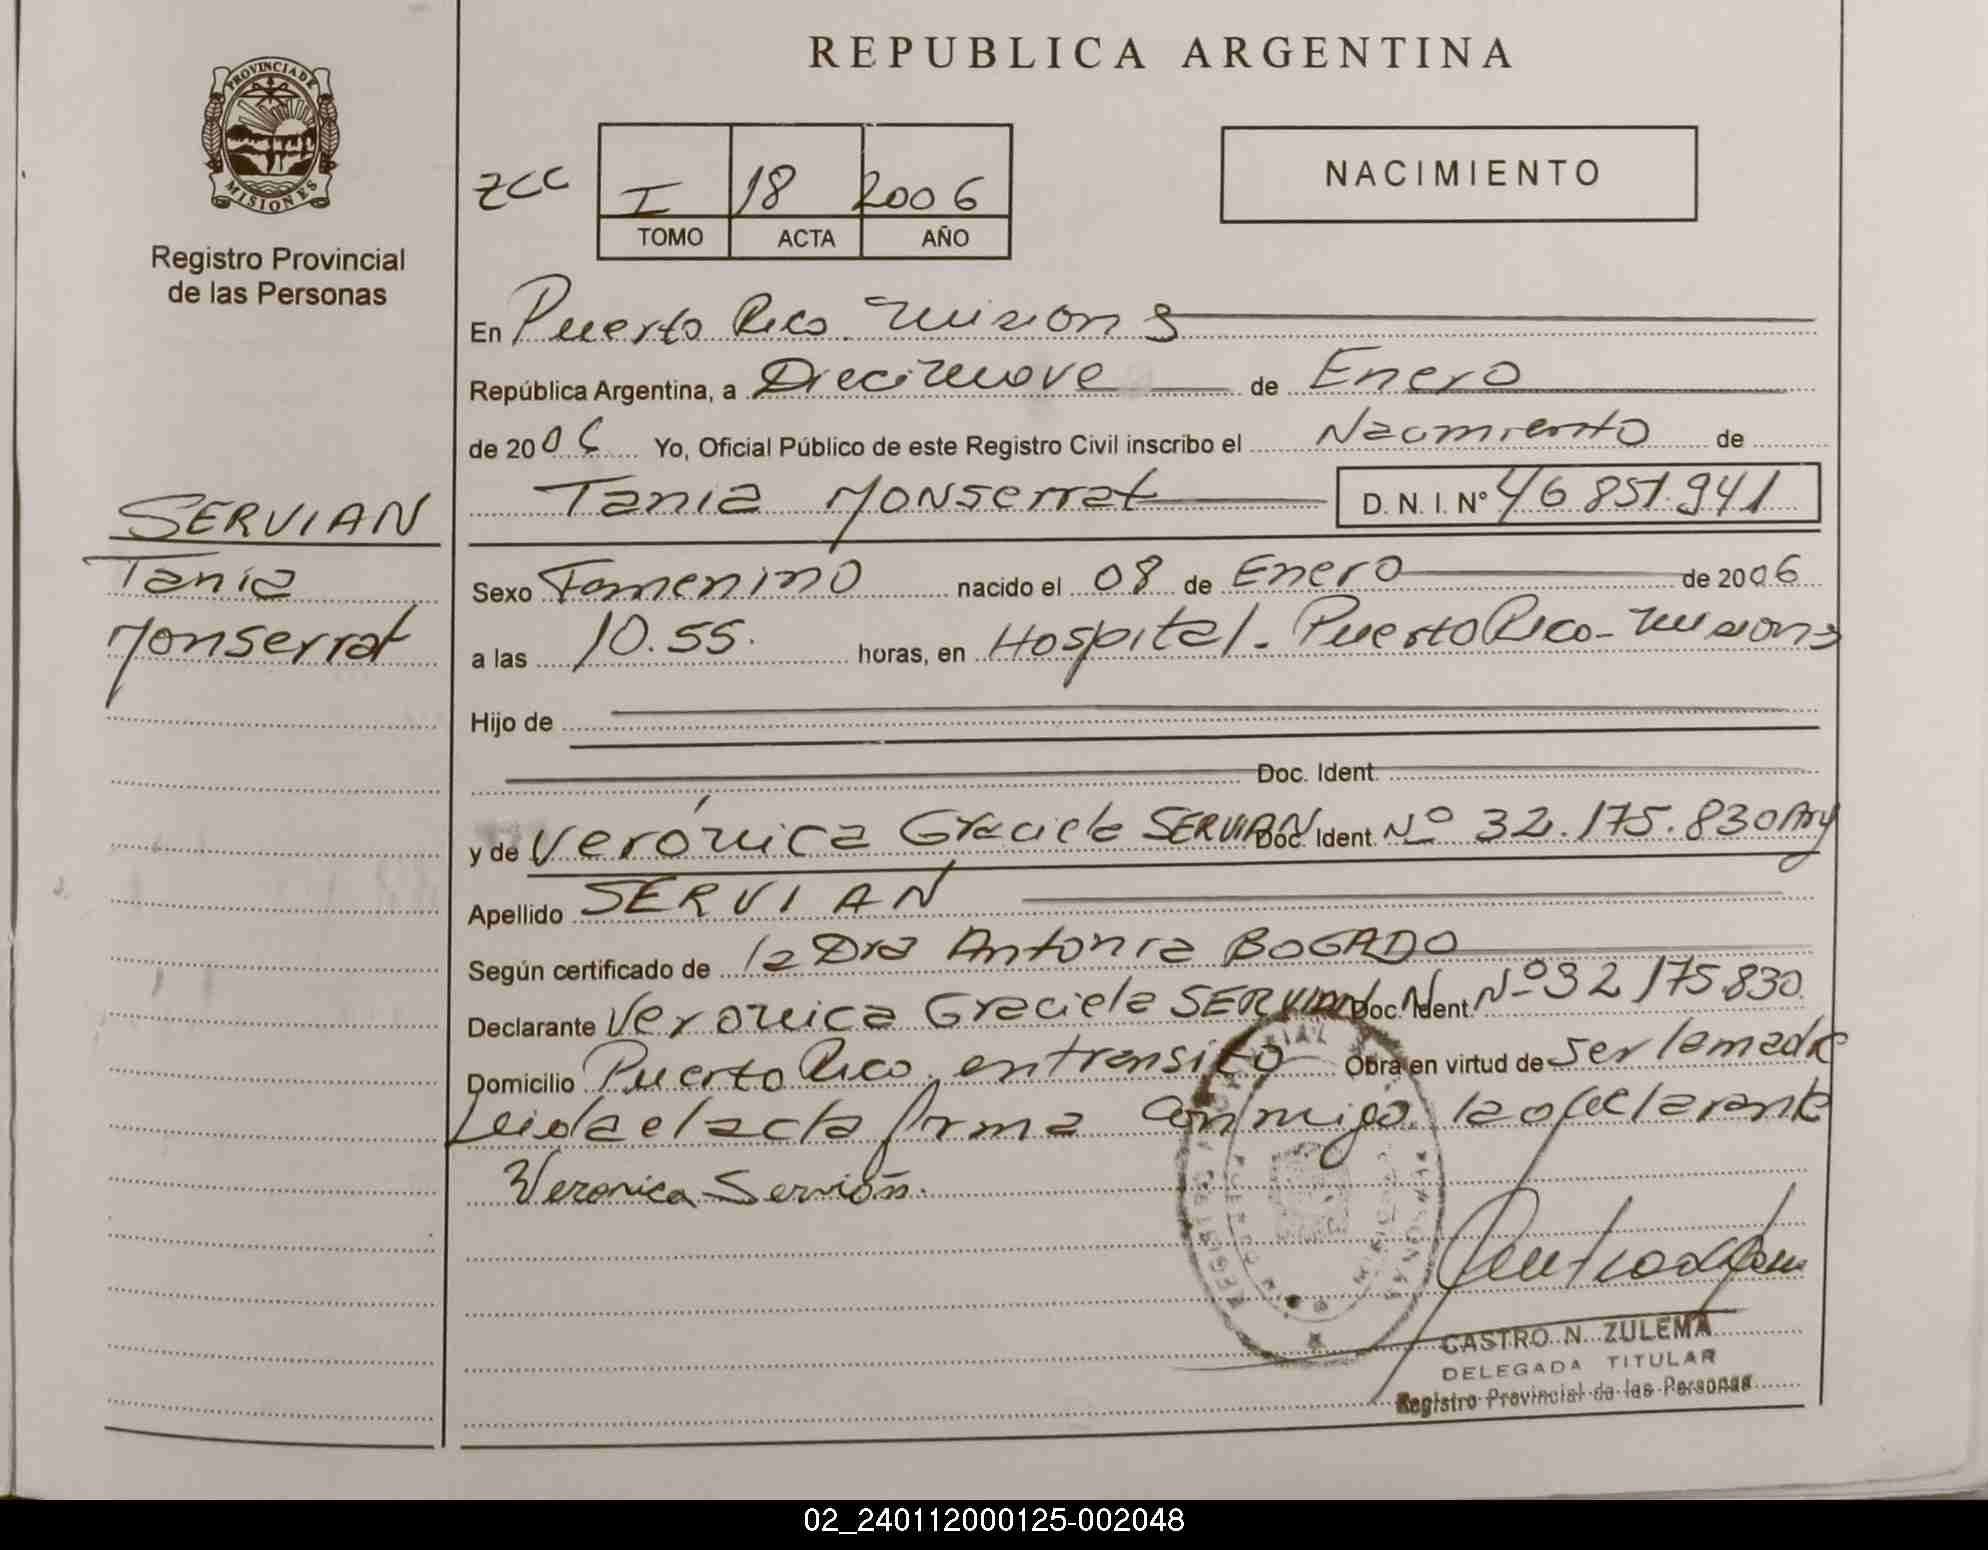 PROVINCIA DE
MISIONES
Registro Provincial
de las Personas
SERVIAN
Tania
Monserrat
REPUBLICA ARGENTINA
ZCC I 18 2006
TOMO ACTA AÑO
NACIMIENTO
En Puerto Rico. Misiones
República Argentina, a Diecinueve de Enero
de 2006 Yo, Oficial Público de este Registro Civil inscribo el Nacimiento de
Tania Monserrat D. N. I. Nº 46.851.941
Sexo Femenino nacido el 08 de Enero de 2006
a las 10.55. horas, en Hospital. Puerto Rico - Misiones
Hijo de
Doc. Ident.
y de Verónica Graciela SERVIAN Doc. Ident. Nº 32.175.830 Arg
Apellido SERVIAN
Según certificado de la Dra Antonia BOGADO
Declarante Veronica Graciela SERVIAN Doc. Ident. Nº 32175.830.
Domicilio Puerto Rico. en transito Obra en virtud de ser la madre
Leida el acta firma conmigo. la declarante
Veronica Servián.
CASTRO N. ZULEMA
DELEGADA TITULAR
Registro Provincial de las Personas
02_240112000125-002048